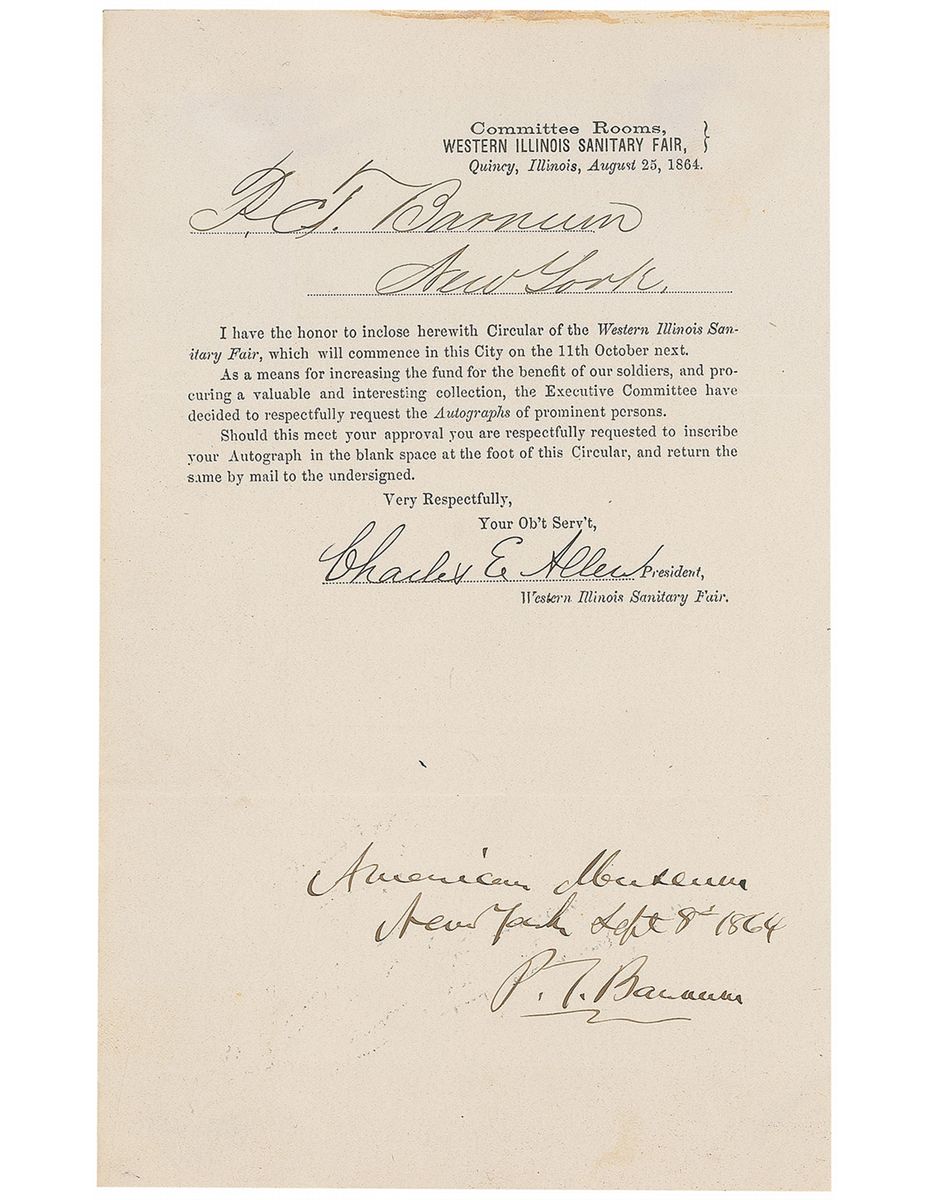 Committee Rooms,
WESTERN ILLINOIS SANITARY FAIR, }
Quincy, Illinois, August 25, 1864.
P. T. Barnum
New York.
I have the honor to inclose herewith Circular of the Western Illinois San-
itary Fair, which will commence in this City on the 11th October next.
As a means for increasing the fund for the benefit of our soldiers, and pro-
curing a valuable and interesting collection, the Executive Committee have
decided to respectfully request the Autographs of prominent persons.
Should this meet your approval you are respectfully requested to inscribe
your Autograph in the blank space at the foot of this Circular, and return the
same by mail to the undersigned.
Very Respectfully,
Your Ob't Serv't,
Charles E Allen President,
Western Illinois Sanitary Fair.
American Museum
New York Sept 8th 1864
P. T. Barnum